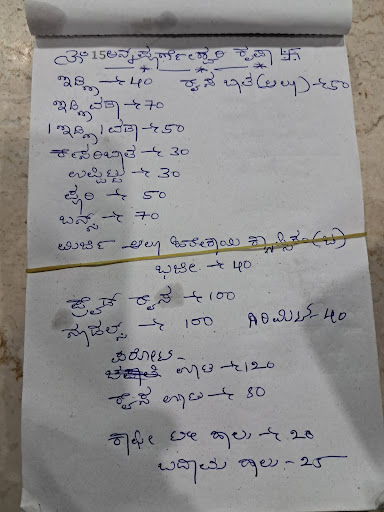 ಅನ್ನಪೂರ್ಣೇಶ್ವರಿ ಕೃಪಾ 卐
ಇಡ್ಲಿ → 40 ರೈಸ ಬಾತ (ಪಲಾವ) → 50
ಇಡ್ಲಿವಡಾ → 70
1 ಇಡ್ಲಿ 1 ವಡಾ → 50
ಕೇಸರಿಬಾತ → 30
ಉಪ್ಪಿಟ್ಟು → 30
ಪುರಿ → 50
ಬನ್ಸ್ → 70
ಮಿರ್ಚಿ
ಭಜೀ → 40
ಫ್ರೈಡ್ ರೈಸ → 100
ನೂಡಲ್ಸ → 100 40
ಪರೋಟಾ -
ಊಟ → 120
ರೈಸ ಊಟ → 80
ಕಾಫೀ ಟೀ ಹಾಲು → 20
ಬದಾಮ ಹಾಲು - 25